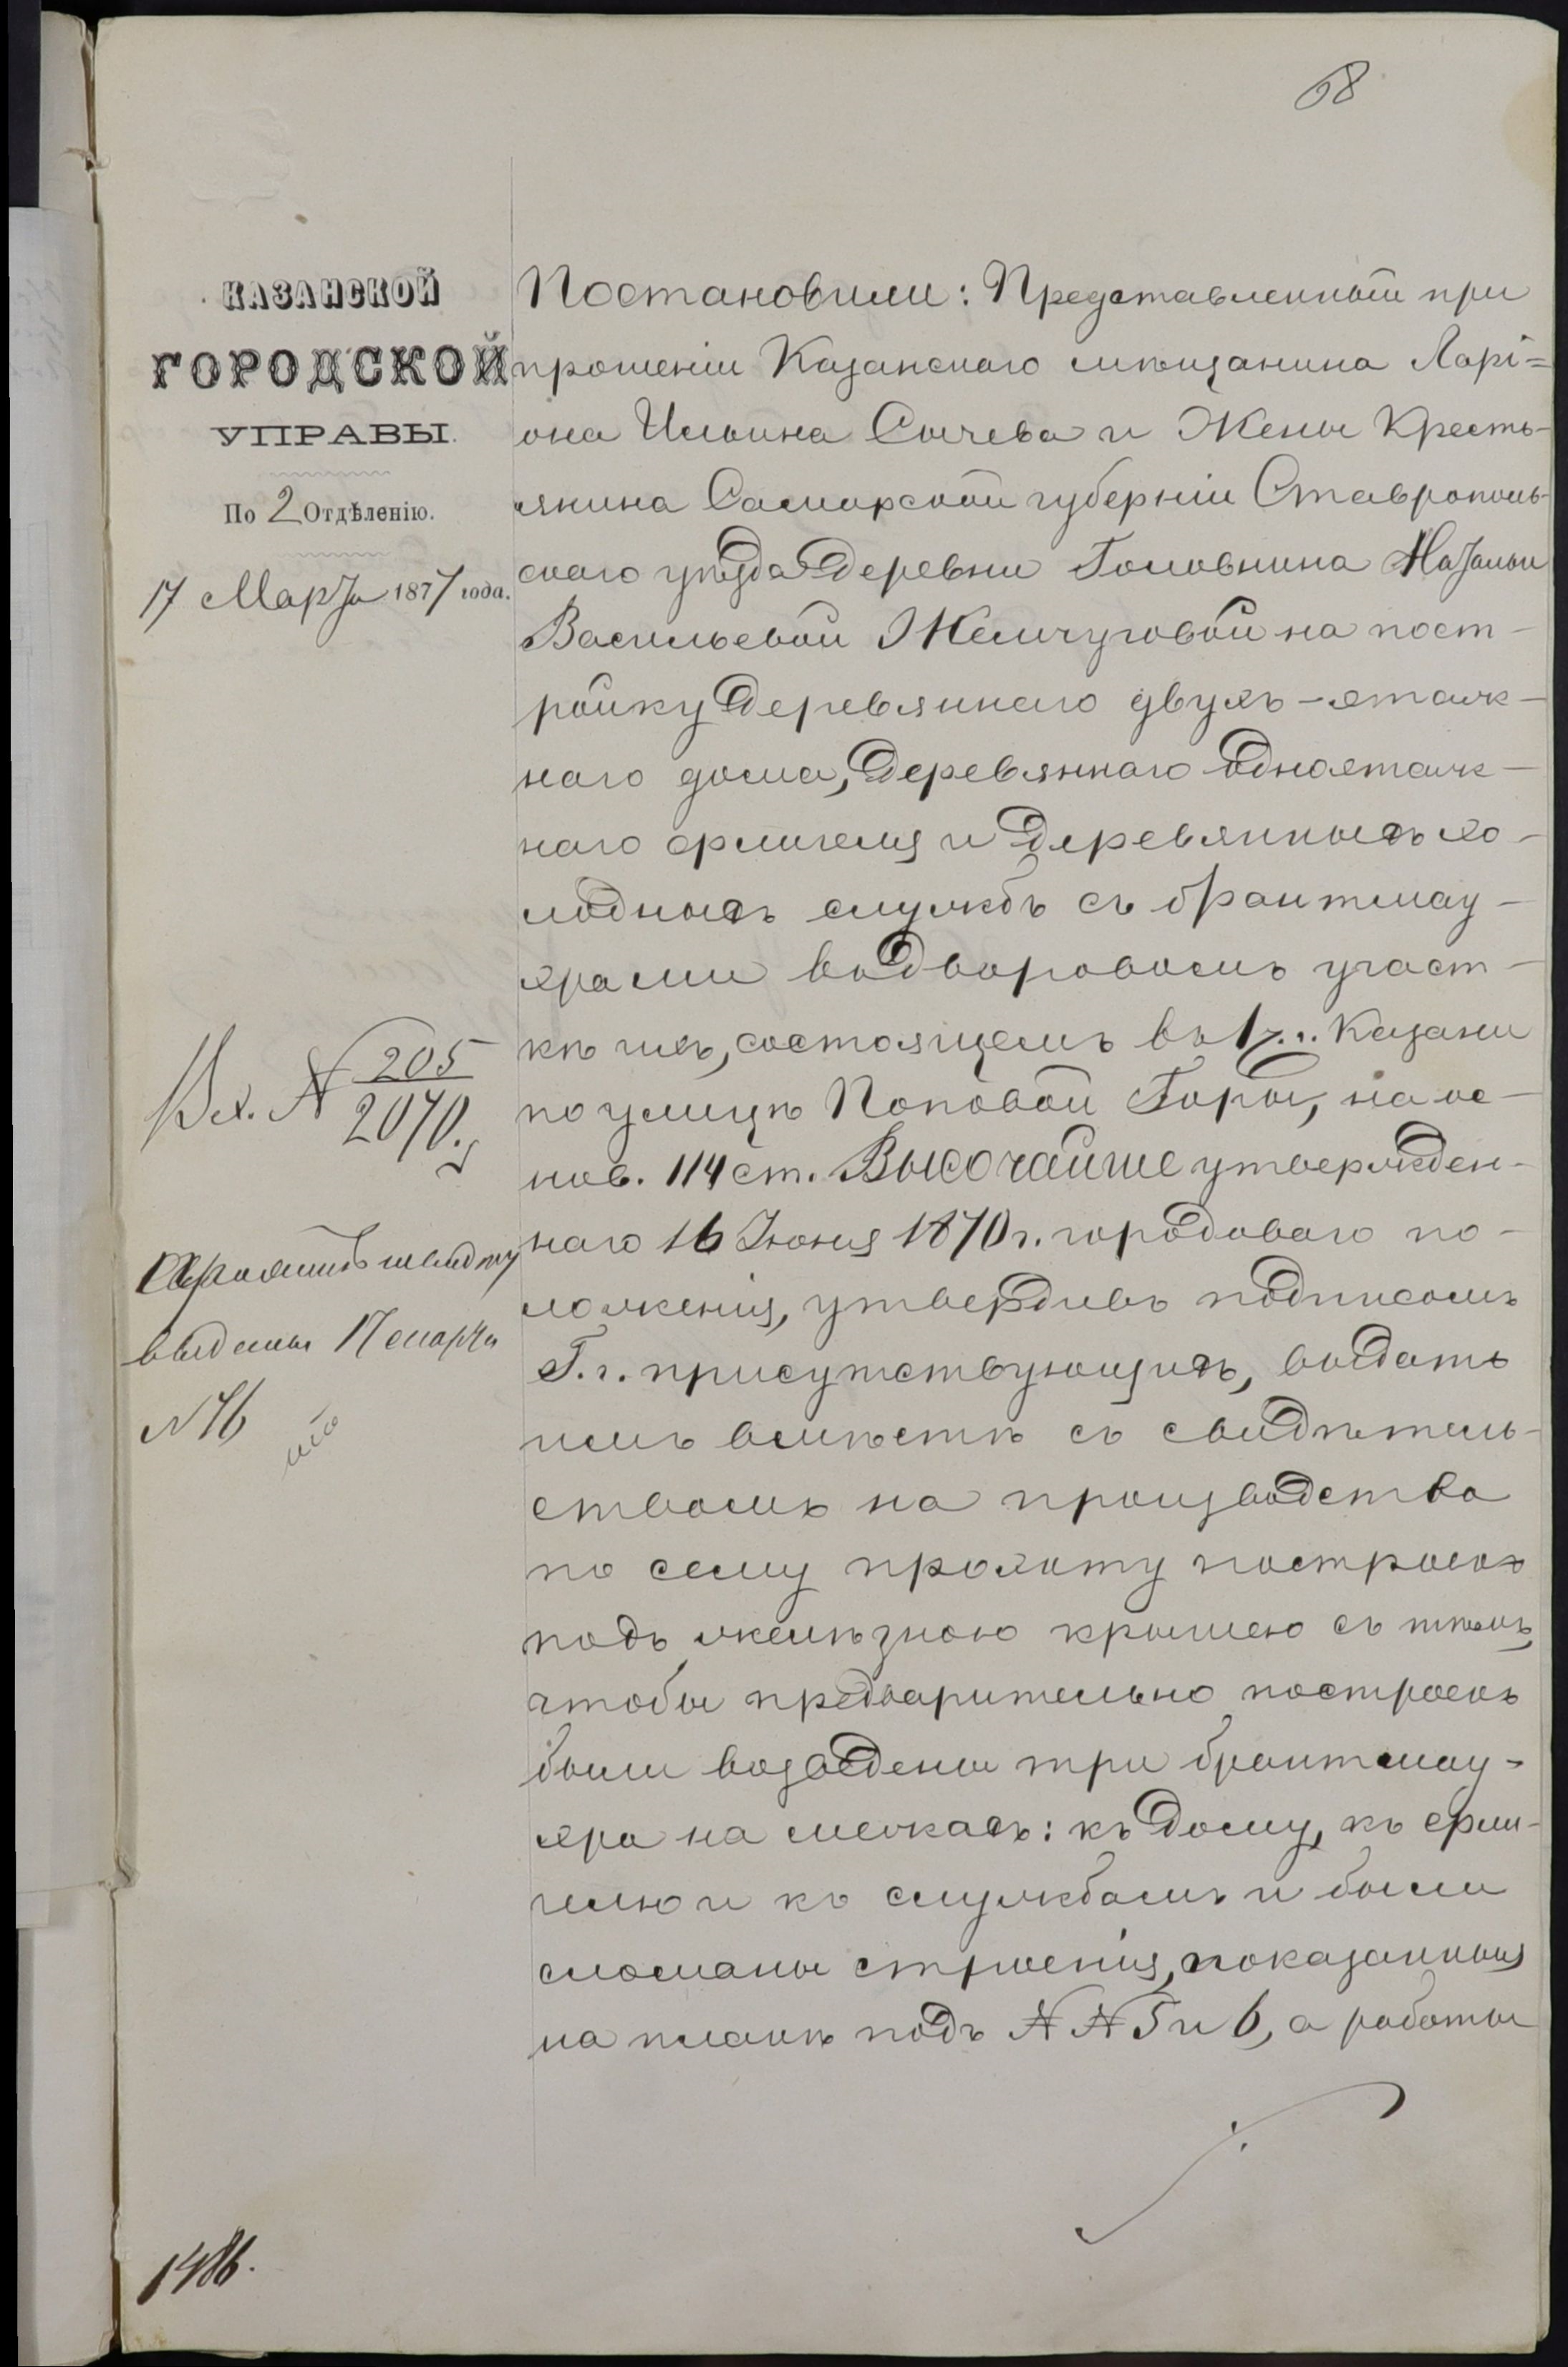 68
КАЗАНСКОЙ
ГОРОДСКОЙ
УПРАВЫ.
По 2 Отдѣленію.
17 Марта 1877 года.
Вх. № 205/2070.
выданы 17 марта
№ 76
1486.
Постановили: Представленный при
прошеніи Казанскаго мѣщанина Ларі=
она Ильина Сычева и Жены Кресть-
янина Самарской губерніи Ставрополь-
скаго уѣзда деревни Головнина Натальи
Васильевой Жемчуговой на пост-
ройку деревяннаго двухъ-этаж-
наго дома, деревяннаго одноэтаж-
наго флигеля и деревянныхъ хо-
лодныхъ службъ съ брантмау-
эрами въ дворовомъ участ-
кѣ ихъ, состоящемъ въ г. Казани
по улицѣ Поповой Горы, на ос-
нов. 114 ст. Высочайше утвержден-
наго 16 Іюня 1870 г. городоваго по-
ложенія, утвердивъ подписомъ
Г.г. присутствующихъ, выдать
имъ вмѣстѣ съ свидѣтель-
ствомъ на производства
по сему проэкту построекъ
подъ желѣзною крышею съ тѣмъ,
чтобы предварительно построекъ
были возведены три брантмау-
эра на межахъ: къ дому, къ фли-
гелю и къ службамъ и были
сломаны строенія, показанныя
на планѣ подъ №№ 5 и 6, а работы